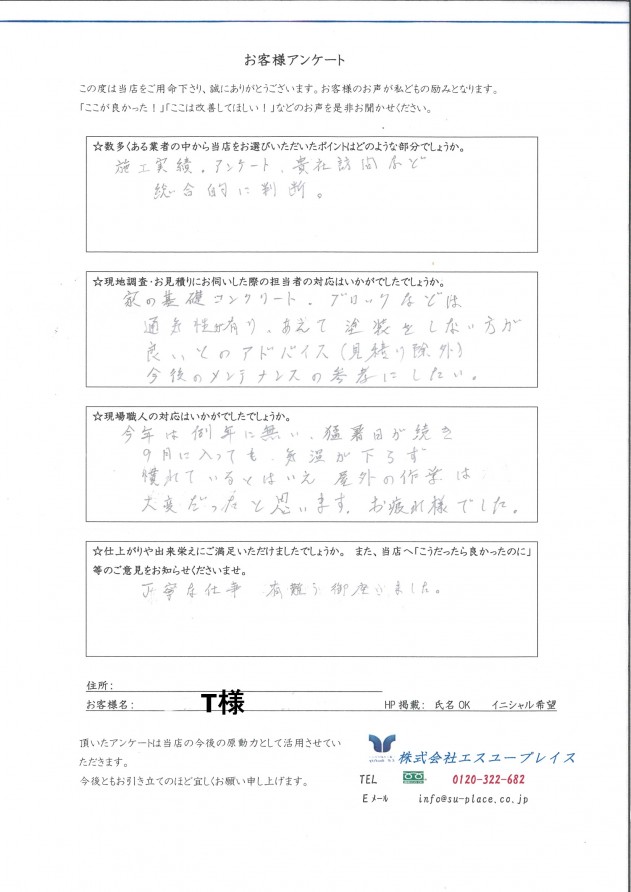 お客様アンケート
この度は当店をご用命下さり、誠にありがとうございます。お客様のお声が私どもの励みとなります。
「ここが良かった!」「ここは改善してほしい!」などのお声を是非お聞かせください。
☆数多くある業者の中から当店をお選びいただいたポイントはどのような部分でしょうか。
施工実績。アンケート、貴社訪問など
総合的に判断。
☆現地調査・お見積りにお伺いした際の担当者の対応はいかがでしたでしょうか。
家の基礎コンクリート。ブロックなどは
通気性が有り、あえて塗装をしない方が
良いとのアドバイス(見積り除外)
今後のメンテナンスの参考にしたい。
☆現場職人の対応はいかがでしたでしょうか。
今年は例年に無い、猛暑日が続き
9月に入っても、気温が下らず
慣れているとはいえ 屋外の作業は
大変だったと思います。お疲れ様でした。
☆仕上がりや出来栄えにご満足いただけましたでしょうか。 また、当店へ「こうだったら良かったのに」
等のご意見をお知らせくださいませ。
丁寧な仕事 有難う御座いました。
住所:
お客様名: T様 HP掲載: 氏名OK イニシャル希望
頂いたアンケートは当店の今後の原動力として活用させてい
ただきます。
今後ともお引き立てのほど宜しくお願い申し上げます。
株式会社エスユープレイス
TEL 0120-322-682
Eメール info@su-place.co.jp